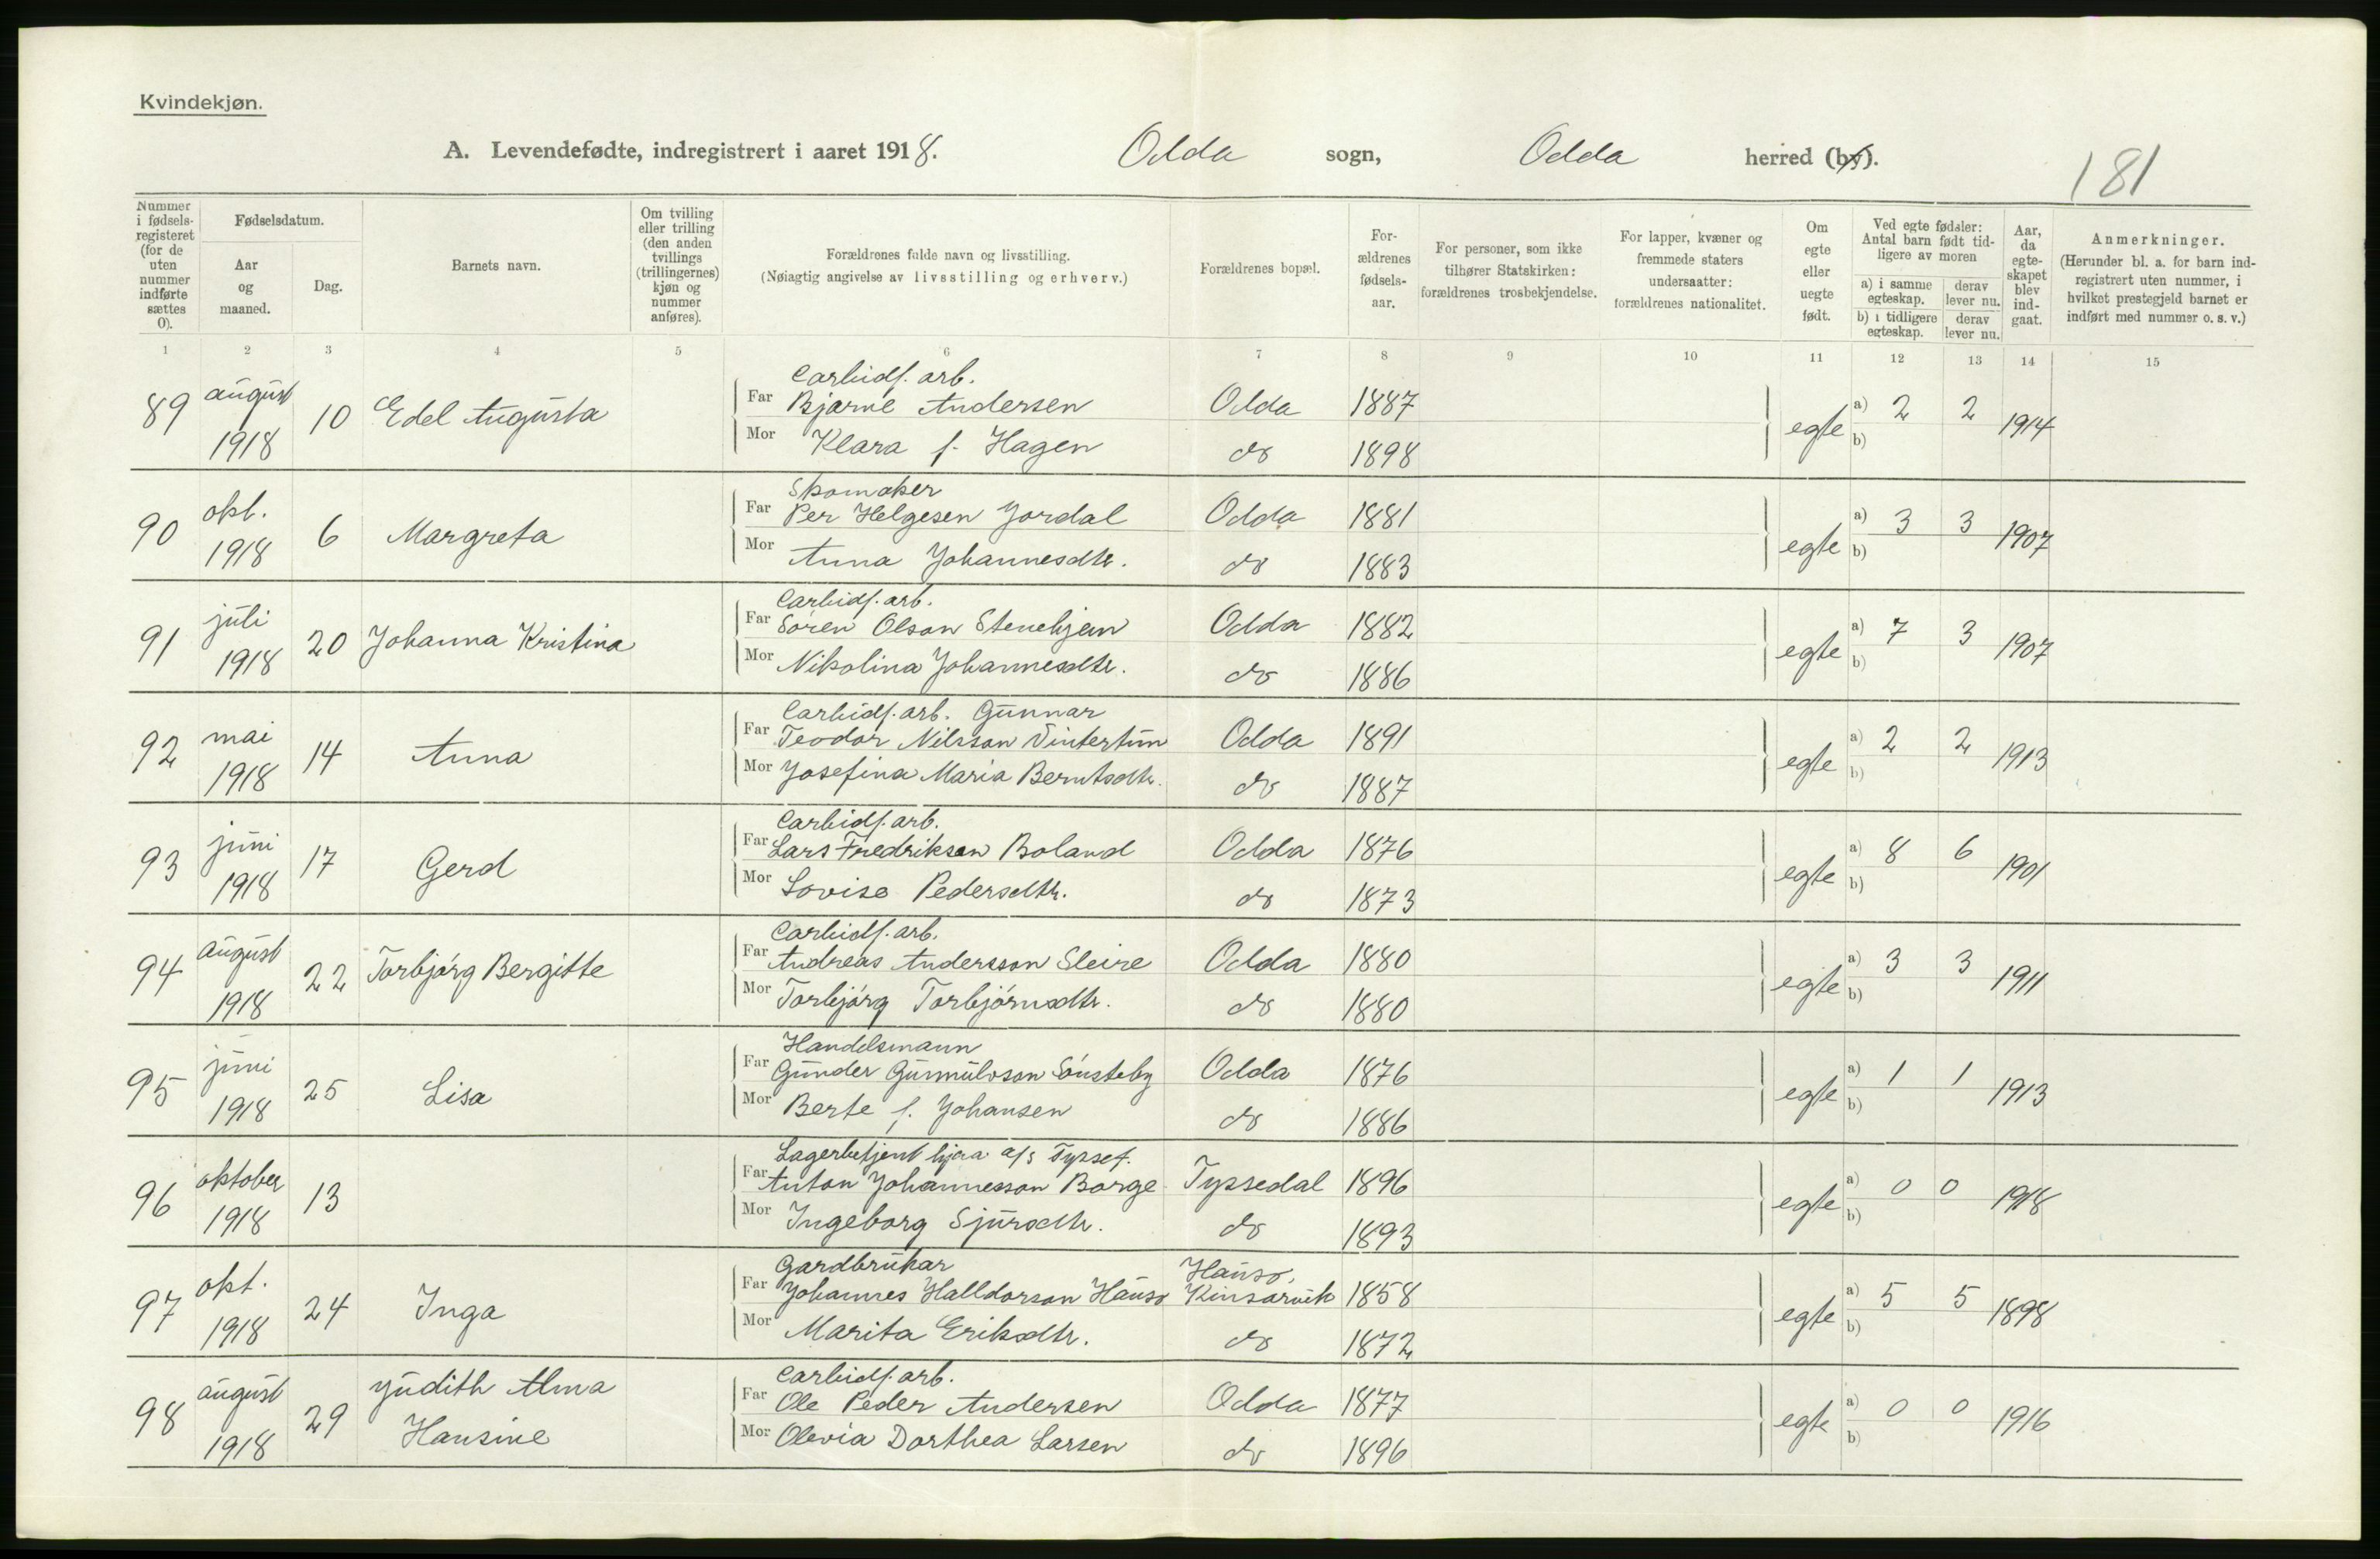 Kvindekjøn.
A. Levendefødte, indregistrert i aaret 1918. Odda sogn, Odda herred (by).
181
Nummer i fødsels-registeret (for de uten nummer indførte sættes 0).
Fødselsdatum.
Aar og maaned.
Dag.
Barnets navn.
Om tvilling eller trilling (den anden tvillings (trillingernes) kjøn og nummer anføres).
Forældrenes fulde navn og livsstilling.
(Nøiagtig angivelse av livsstilling og erhverv.)
Forældrenes bopæl.
For-ældrenes fødsels-aar.
For personer, som ikke tilhører Statskirken: forældrenes trosbekjendelse.
For lapper, kvæner og fremmede staters undersaatter: forældrenes nationalitet.
Om egte eller uegte født.
Ved egte fødsler: Antal barn født tid-ligere av moren
a) i samme egteskap. derav lever nu.
b) i tidligere egteskap. derav lever nu.
Aar, da egte-skapet blev ind-gaat.
Anmerkninger.
(Herunder bl. a. for barn ind-registrert uten nummer, i hvilket prestegjeld barnet er indført med nummer o. s. v.)
1 2 3 4 5 6 7 8 9 10 11 12 13 14 15
Carbidf. arb.
89 august 1918 10 Edel Augusta Far Bjarne Andersen Odda 1887 egte a) 2 2 1914
Mor Klara f. Hagen do 1898 b)
Skomaker
90 okt. 1918 6 Margreta Far Per Helgesen Jordal Odda 1881 egte a) 3 3 1907
Mor Anna Johannesdtr. do 1883 b)
Carbidf. arb.
91 juli 1918 20 Johanna Kristina Far Sören Olson Stenehjem Odda 1882 egte a) 7 3 1907
Mor Nikolina Johannesdtr. do 1886 b)
Carbidf. arb. Gunnar
92 mai 1918 14 Anna Far Teodor Nilsson Vintertun Odda 1891 egte a) 2 2 1913
Mor Josefina Maria Berntsdtr. do 1887 b)
Carbidf. arb.
93 juni 1918 17 Gerd Far Lars Fredriksen Boland Odda 1876 egte a) 8 6 1901
Mor Lovise Pedersdtr. do 1873 b)
Carbidf. arb.
94 august 1918 22 Torbjórg Bergitte Far Andreas Andersson Sleire Odda 1880 egte a) 3 3 1911
Mor Torbjórg Torbjórnsdtr. do 1880 b)
Handelsmann
95 juni 1918 25 Lisa Far Gunder Gunnulvson Sónsteby Odda 1876 egte a) 1 1 1913
Mor Berte f. Johansen do 1886 b)
Lagerbetjent hjaa a/s Tyssef.
96 oktober 1918 13 Far Anton Johannesson Borge Tyssedal 1896 egte a) 0 0 1918
Mor Ingeborg Sjursdtr. do 1893 b)
Gardbrukar Hauso,
97 okt. 1918 24 Inga Far Johannes Halldorson Hauso Kinsarvik 1858 egte a) 5 5 1898
Mor Marita Eriksdtr. do 1872 b)
Carbidf. arb.
98 august 1918 29 Judith Alma Hansine Far Ole Peder Andersen Odda 1877 egte a) 0 0 1916
Mor Olevia Dorthea Larsen do 1896 b)